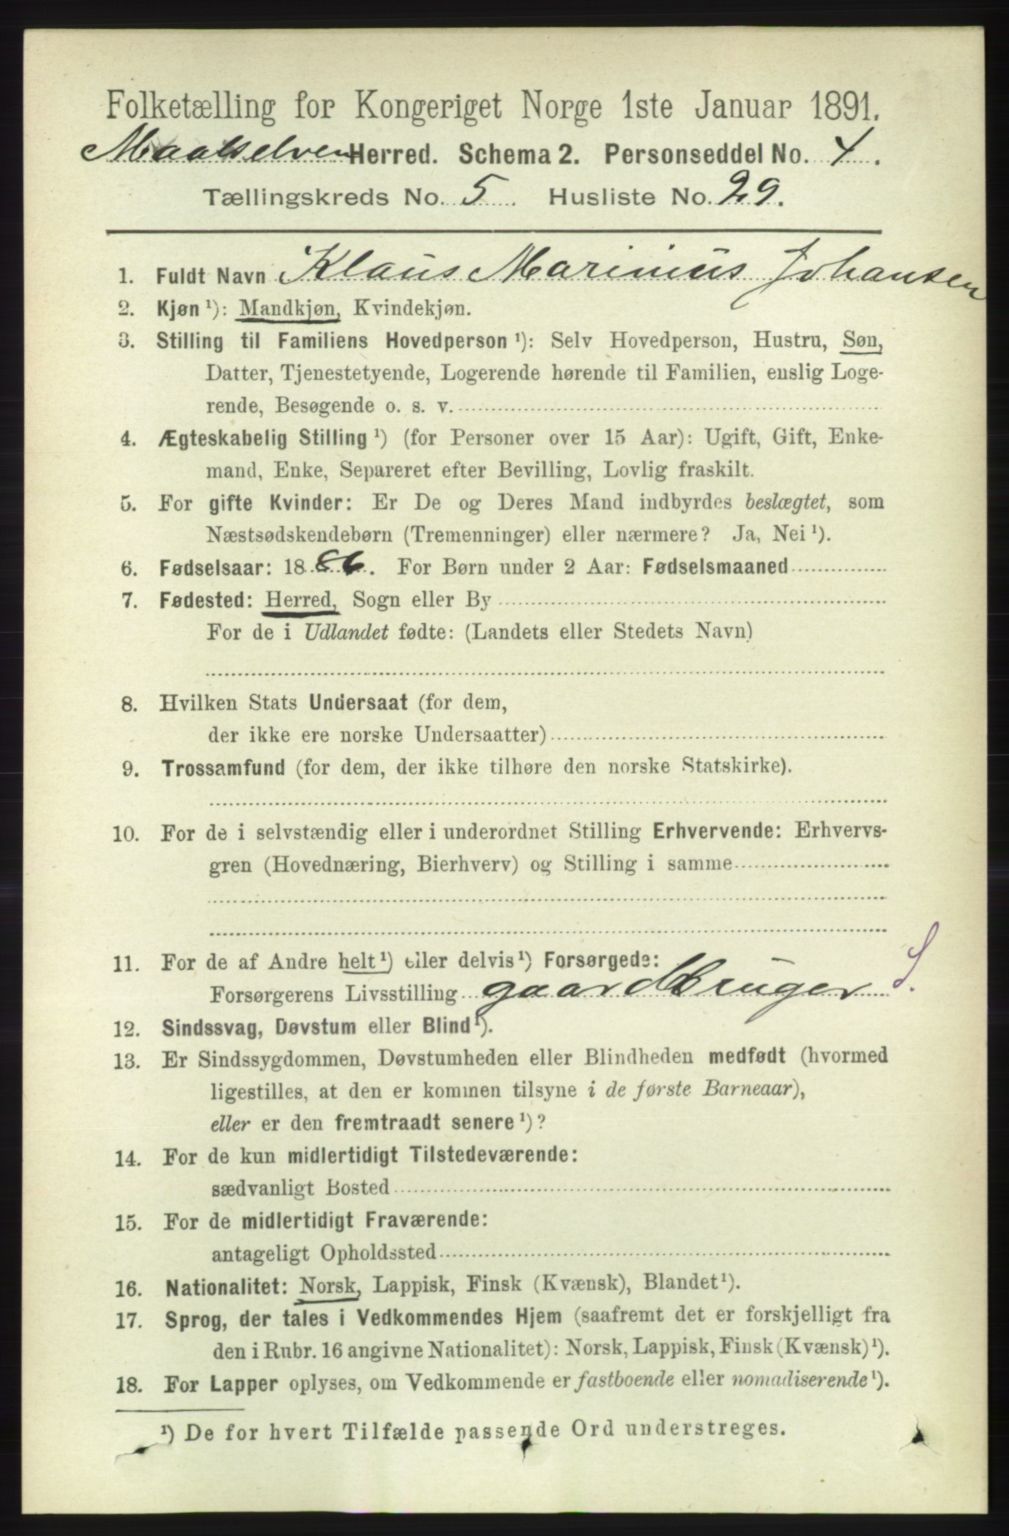 Folketælling for Kongeriget Norge 1ste Januar 1891.
Maalselven Herred. Schema 2. Personseddel No. 4.
Tællingskreds No. 5. Husliste No. 29.
1. Fuldt Navn Klaus Marinius Johansen
2. Kjøn ¹): Mandkjøn, Kvindekjøn.
3. Stilling til Familiens Hovedperson ¹): Selv Hovedperson, Hustru, Søn,
Datter, Tjenestetyende, Logerende hørende til Familien, enslig Loge-
rende, Besøgende o. s. v.
4. Ægteskabelig Stilling ¹) (for Personer over 15 Aar): Ugift, Gift, Enke-
mand, Enke, Separeret efter Bevilling, Lovlig fraskilt.
5. For gifte Kvinder: Er De og Deres Mand indbyrdes beslægtet, som
Næstsødskendebørn (Tremenninger) eller nærmere? Ja, Nei ¹).
6. Fødselsaar: 1886. For Børn under 2 Aar: Fødselsmaaned
7. Fødested: Herred, Sogn eller By
For de i Udlandet fødte: (Landets eller Stedets Navn)
8. Hvilken Stats Undersaat (for dem,
der ikke ere norske Undersaatter)
9. Trossamfund (for dem, der ikke tilhøre den norske Statskirke).
10. For de i selvstændig eller i underordnet Stilling Erhvervende: Erhvervs-
gren (Hovednæring, Bierhverv) og Stilling i samme
11. For de af Andre helt ¹) eller delvis ¹) Forsørgede:
Forsørgerens Livsstilling gaardbruger S.
12. Sindssvag, Døvstum eller Blind ¹).
13. Er Sindssygdommen, Døvstumheden eller Blindheden medfødt (hvormed
ligestilles, at den er kommen tilsyne i de første Barneaar),
eller er den fremtraadt senere ¹)?
14. For de kun midlertidigt Tilstedeværende:
sædvanligt Bosted
15. For de midlertidigt Fraværende:
antageligt Opholdssted
16. Nationalitet: Norsk, Lappisk, Finsk (Kvænsk), Blandet ¹).
17. Sprog, der tales i Vedkommendes Hjem (saafremt det er forskjelligt fra
den i Rubr. 16 angivne Nationalitet): Norsk, Lappisk, Finsk (Kvænsk) ¹).
18. For Lapper oplyses, om Vedkommende er fastboende eller nomadiserende ¹).
¹) De for hvert Tilfælde passende Ord understreges.